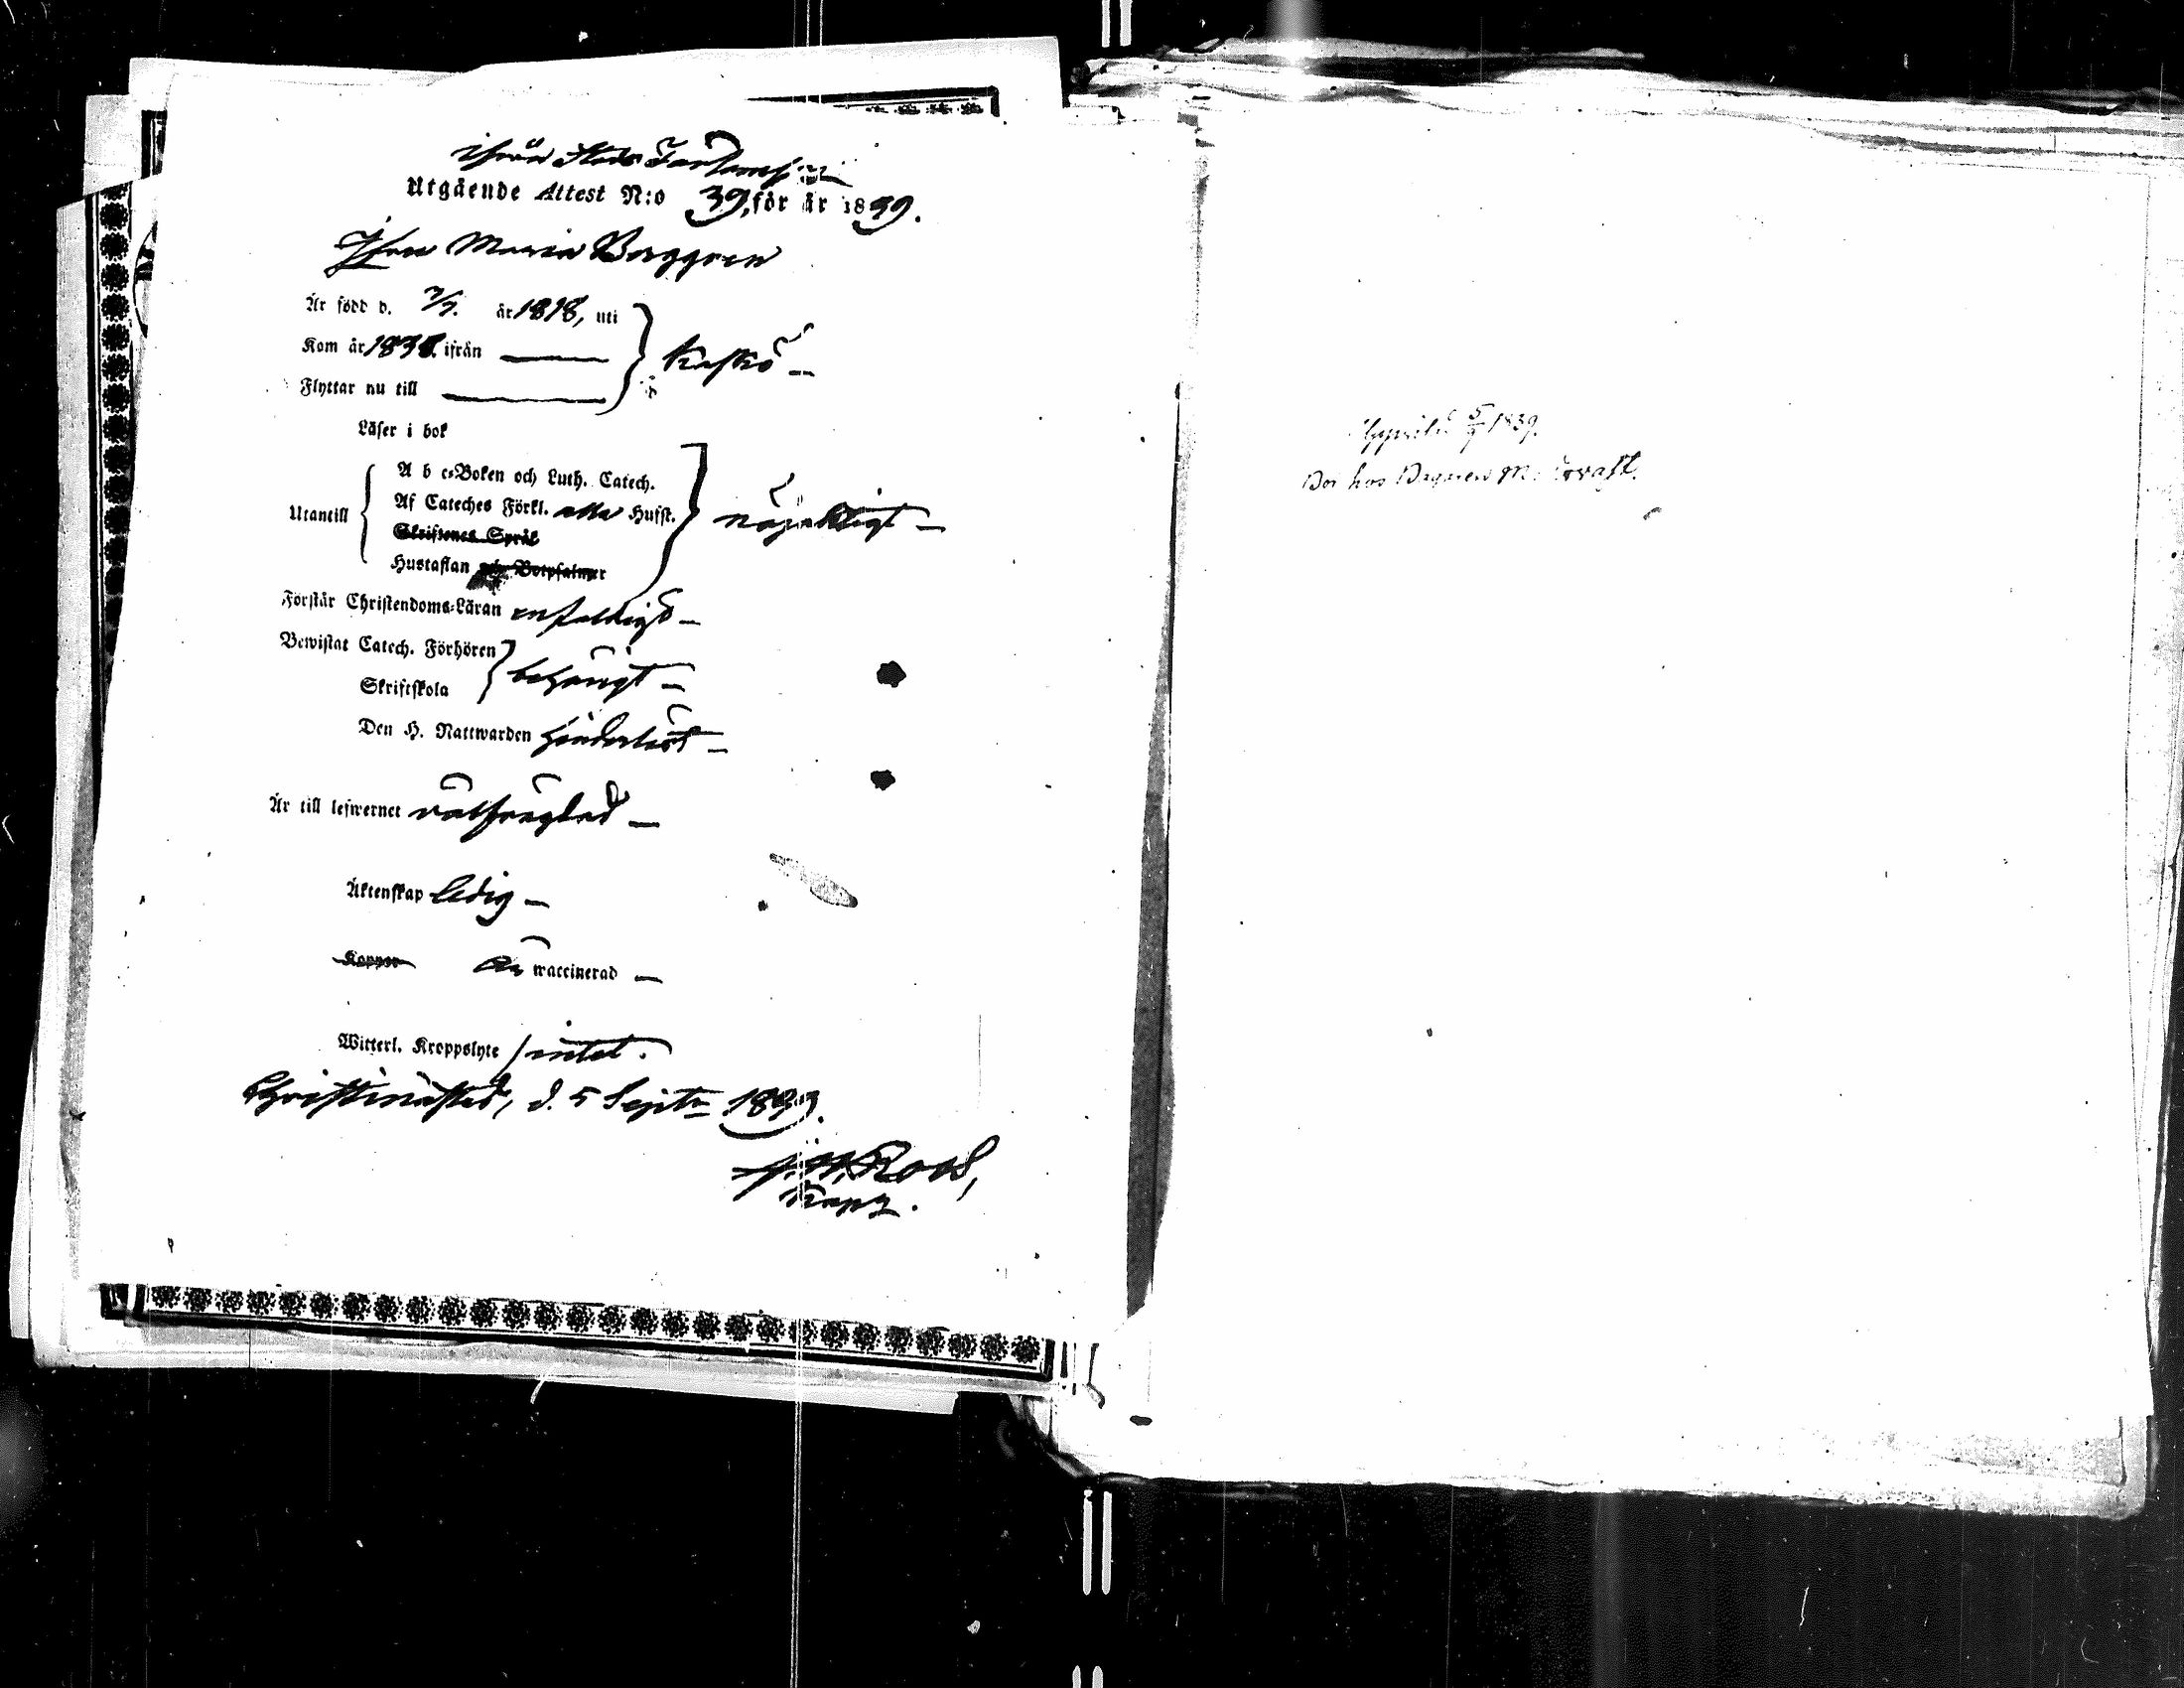 ifrån Stads Församl:
Utgående Attest N:o 39, för år 1839.
Maria Berggren
Är född d. 7/7. år 1818, uti
Kom år 1838. ifrån
Flyttar nu till
Kaskö
Läser i bok
Utantill
A b c-Boken och Luth. Catech.
Af Cateches Förkl. alla Hufst.
Skriftenes Språk
Hustaflan och Botpsalmer
nöjaktigt
Förstår Christendoms-Läran enfaldigt
Bewistat Catech. Förhören
Skriftskola
behörigt
Den H. Nattwarden hinderlöst
Är till lefwernet välfrägdad
Äktenskap ledig
Koppor är waccinerad
Witterl. Kroppslyte intet.
Christinæstad, d. 5 Septr 1839.
Roos,
Kapz.
5/9 1839.
Bor hos Bagaren